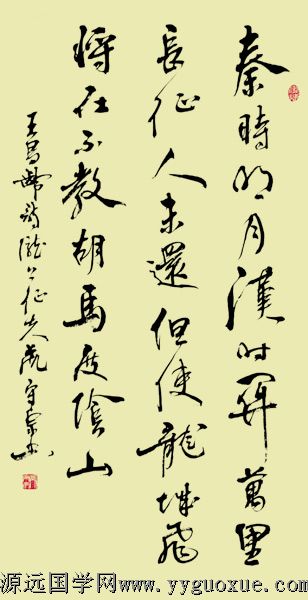 秦時明月漢時關萬里
長征人未還但使龍城飛
將在不教胡馬度陰山
王昌齡詩
源远国学网www.yyguoxue.com